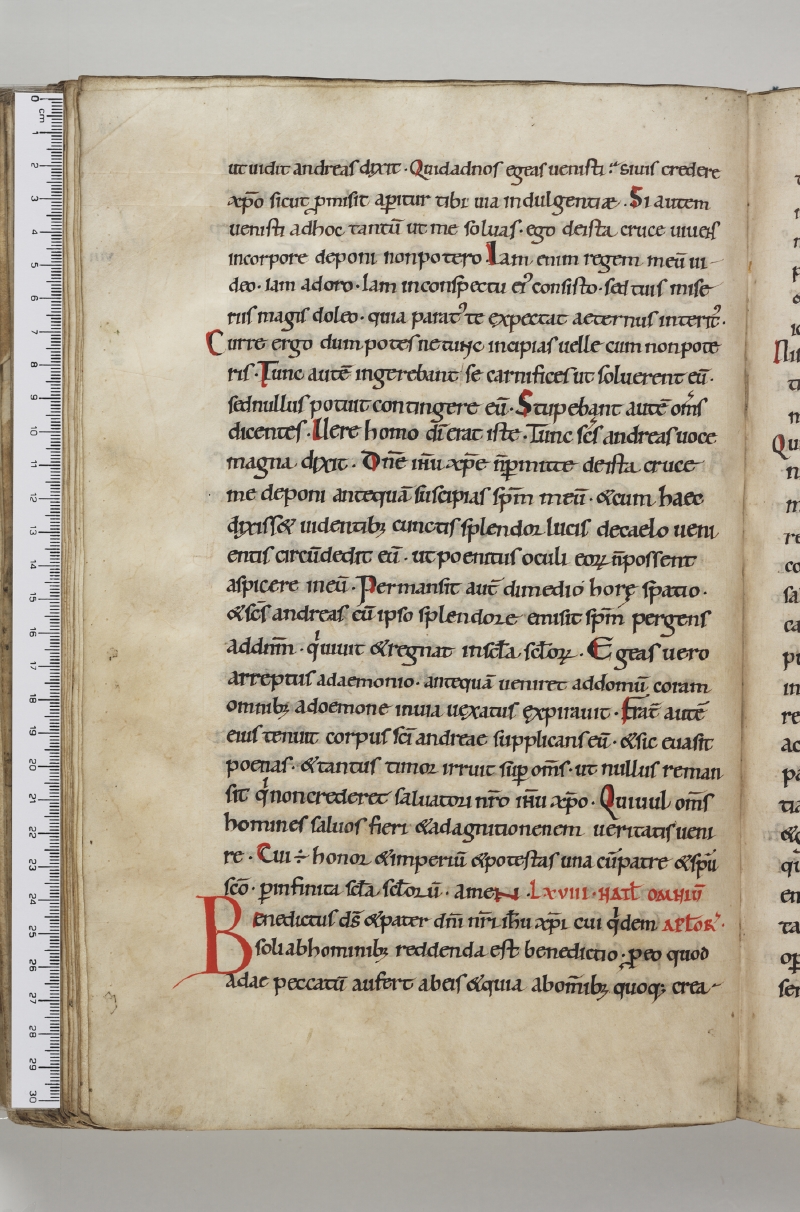 ut uidit andreas dixit · Quid ad nos egeas uenisti ? Si uis credere
xp̄o sicut ꝓmisit aperitur tibi uia indulgentiae · Si autem
uenisti adhoc tantū ut me soluas · ego deista cruce uiuens
incorpore deponi nonpotero · Iam enim regem meū ui
deo · iam adoro · Iam inconspectu ei᾿ consisto · sed tuis mise
riis magis doleo · quia parat᾿ te expectat aeternus interit᾿ ·
Curre ergo dum potes ne tunc incipias uelle cum non pote
ris · Tunc autē ingerebant se carnifices ut soluerent eū ·
sed nullus potuit contingere eū · Stupebant autē om̄s
dicentes · Uere homo dī erat iste · Tunc sc̄s andreas uoce
magna dixit · Dn̄e ih̄u xp̄e n̄ permitte deista cruce
me deponi antequā suscipias sp̄m meū · &cum haec
dixiss& uidentib; cunctis splendor lucis decaelo ueni
entis circūdedit eū · ut poenitus oculi eoꝝ n̄ possent
aspicere ineū · Permansit aut̄ dimedio horę spatio ·
&sc̄s andreas cū ipso splendore emisit sp̄m pergens
addn̄m · qui uiuit &regnat insc̄la sc̄loꝝ · Egeas uero
arreptus adaemonio · antequā ueniret addomū coram
omnib; adoemone inuia uexatus expirauit · Frat̄ autē
eius tenuit corpus sc̄i andreae supplicans eū · &sic euasit
poenas · &tantus timor irruit suꝑ om̄s · ut nullus reman
sit qui non crederet saluatori nr̄o ih̄u xp̄o · Qui uul om̄s
homines saluos fieri &adagnitionenem ueritatis ueni
re · Cui ÷ honor &imperiū &potestas una cū patre &sp̄u
sc̄o · ꝑinfinita sc̄la sc̄lorū · amen · LXVIII · NAT̄ OMNIŪ
Benedictus ds̄ &pater dn̄i nr̄i ih̄u xp̄i cui qͥdem AP̄LOꝜ ·
soli abhominib; reddenda est benedictio · ꝓeo quod
adae peccatū aufert abeis &quia abom̄ib; quoq; crea